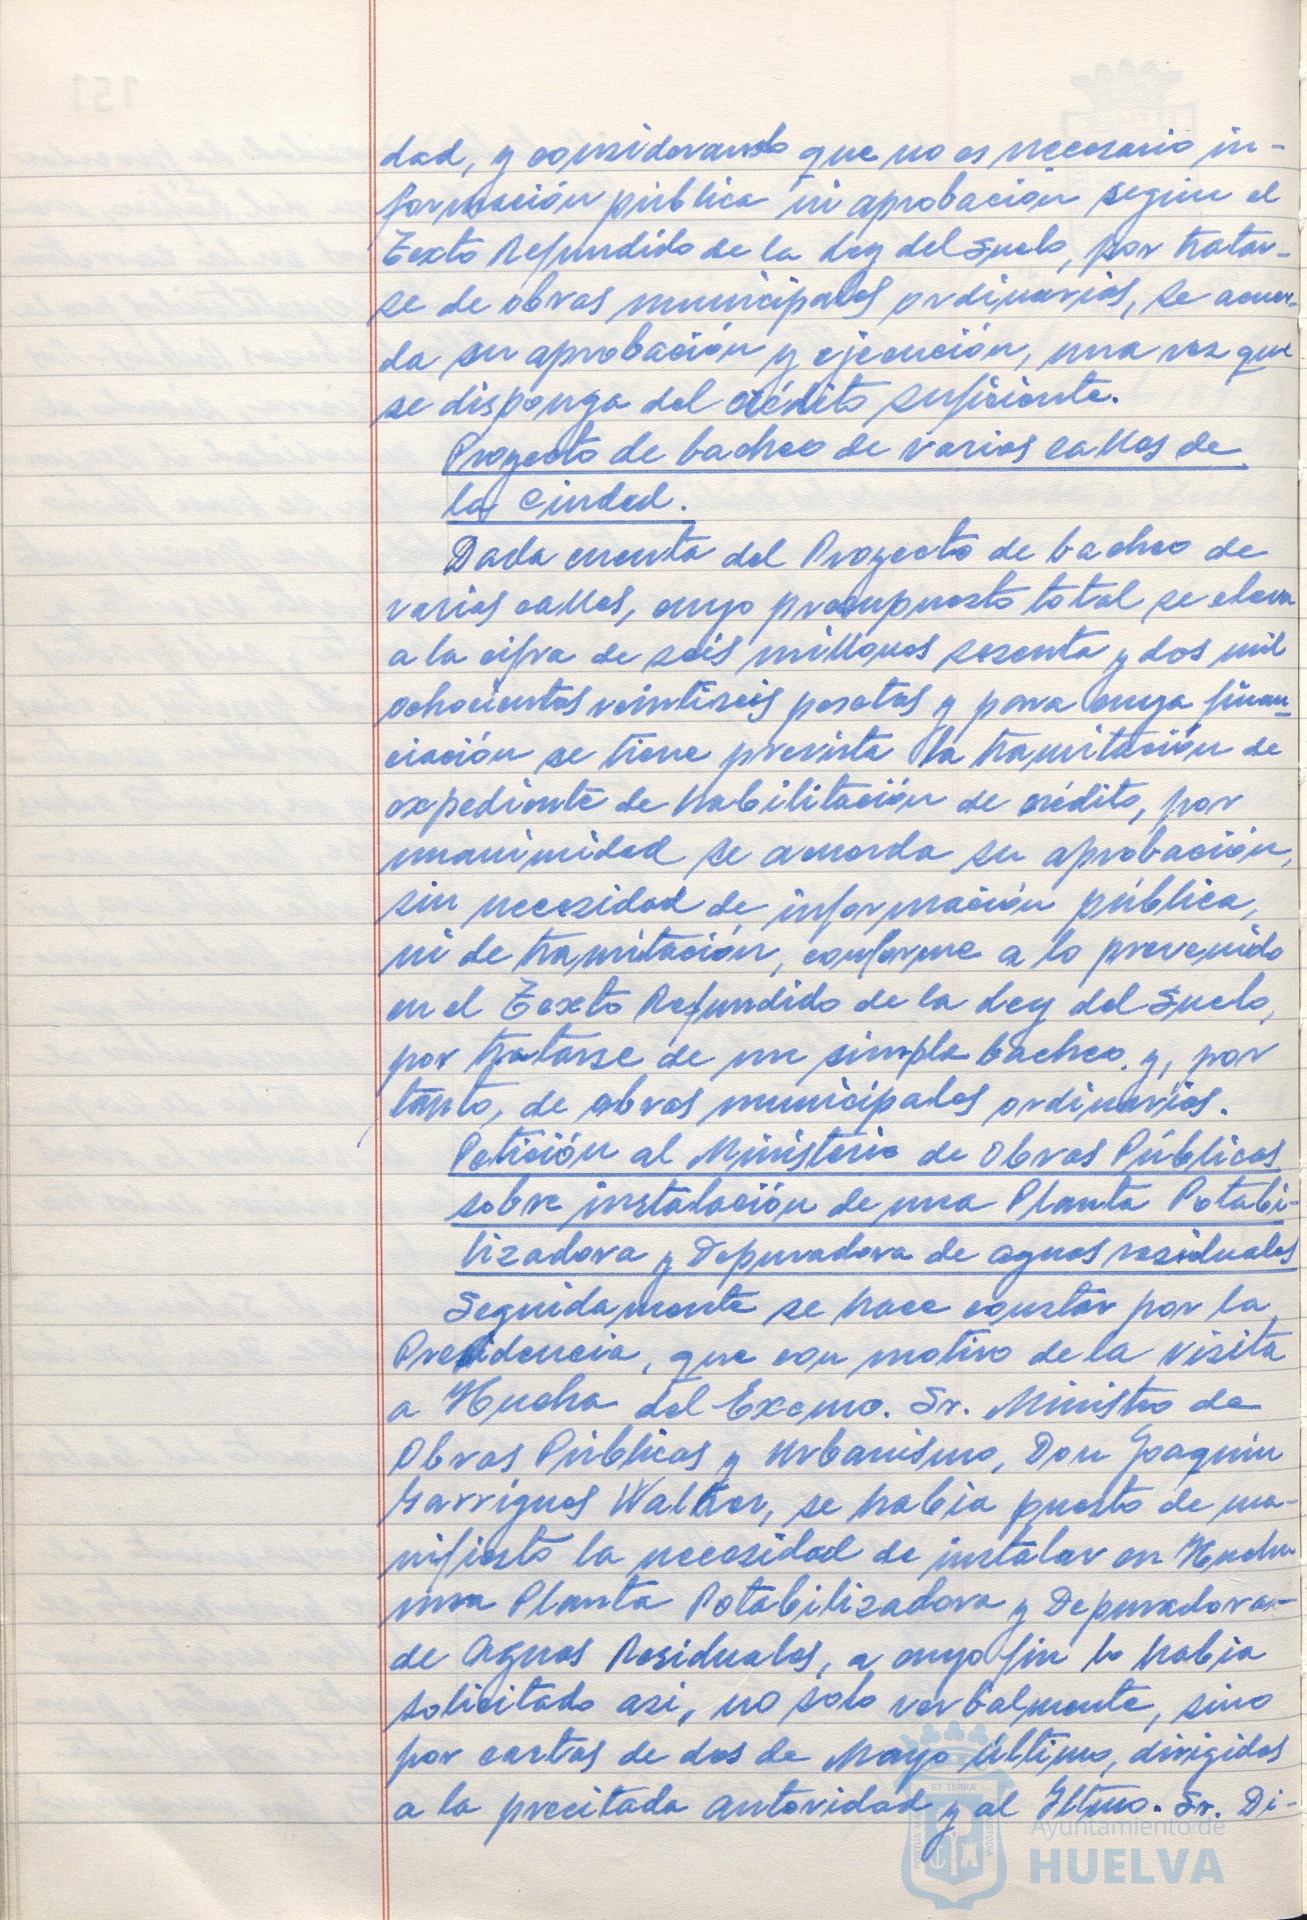 dad, y considerando que no es necesario in-
formación pública ni aprobación según el
Texto Refundido de la Ley del Suelo, por tratar-
se de obras municipales ordinarias, se acuer-
da su aprobación y ejecución, una vez que
se disponga del crédito suficiente.
Proyecto de bacheo de varias calles de
la Ciudad.
Dada cuenta del Proyecto de bacheo de
varias calles, cuyo presupuesto total se eleva
a la cifra de seis millones sesenta y dos mil
ochocientas veintiseis pesetas y para cuya finan-
ciación se tiene prevista la tramitación de
expediente de habilitación de crédito, por
unanimidad se acuerda su aprobación,
sin necesidad de información pública,
ni de tramitación, conforme a lo prevenido
en el Texto Refundido de la Ley del Suelo,
por tratarse de un simple bacheo y, por
tanto, de obras municipales ordinarias.
Petición al Ministerio de Obras Públicas
sobre instalación de una Planta Potabi-
lizadora y Depuradora de aguas residuales
Seguidamente se hace constar por la
Presidencia, que con motivo de la visita
a Huelva del Excmo. Sr. Ministro de
Obras Públicas y Urbanismo, Don Joaquín
Garrigues Walker, se había puesto de ma-
nifiesto la necesidad de instalar en Huelva
una Planta Potabilizadora y Depuradora-
de Aguas Residuales, a cuyo fin lo había
solicitado asi, no solo verbalmente, sino
por cartas de dos de Mayo último, dirigidas
a la precitada autoridad y al Iltmo. Sr. Di-
Ayuntamiento de
HUELVA